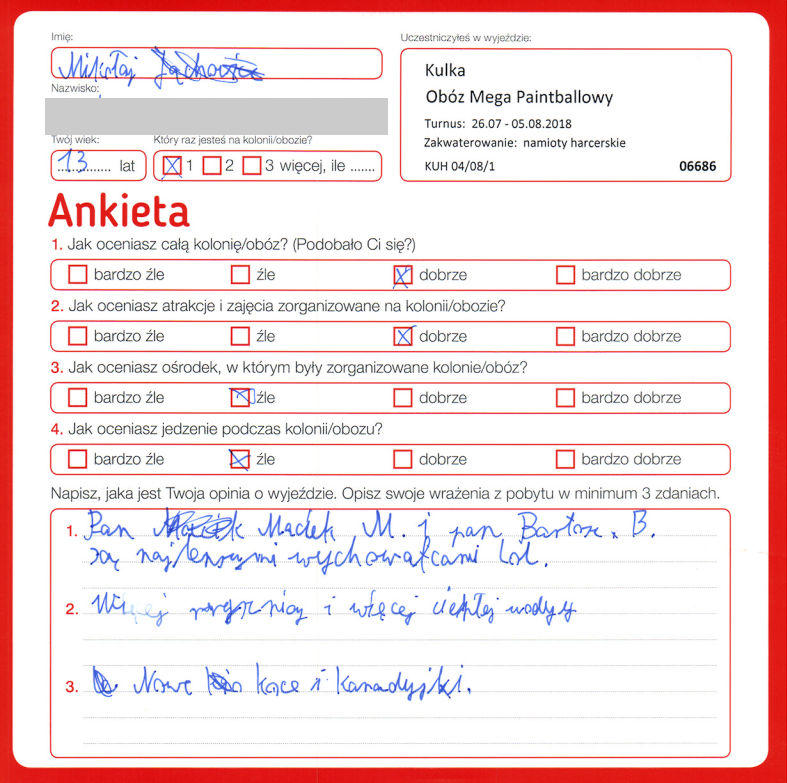 Imię:
Uczestniczyłeś w wyjeździe:
Mikołaj
Kulka
Nazwisko:
Obóz Mega Paintballowy
Turnus: 26.07 - 05.08.2018
Twój wiek: Który raz jesteś na kolonii/obozie?
Zakwaterowanie: namioty harcerskie
13 lat 1 2 3 więcej, ile .......
KUH 04/08/1 06686
Ankieta
1. Jak oceniasz całą kolonię/obóz? (Podobało Ci się?)
bardzo źle źle dobrze bardzo dobrze
2. Jak oceniasz atrakcje i zajęcia zorganizowane na kolonii/obozie?
bardzo źle źle dobrze bardzo dobrze
3. Jak oceniasz ośrodek, w którym były zorganizowane kolonie/obóz?
bardzo źle źle dobrze bardzo dobrze
4. Jak oceniasz jedzenie podczas kolonii/obozu?
bardzo źle źle dobrze bardzo dobrze
Napisz, jaka jest Twoja opinia o wyjeździe. Opisz swoje wrażenia z pobytu w minimum 3 zdaniach.
1. Pan Maciek M. i pan Bartosz B.
są najlepszymi wychowafcami Lol.
2. Więcej i więcej ciepłej wody
3. Nowe koce i kanadyjki.